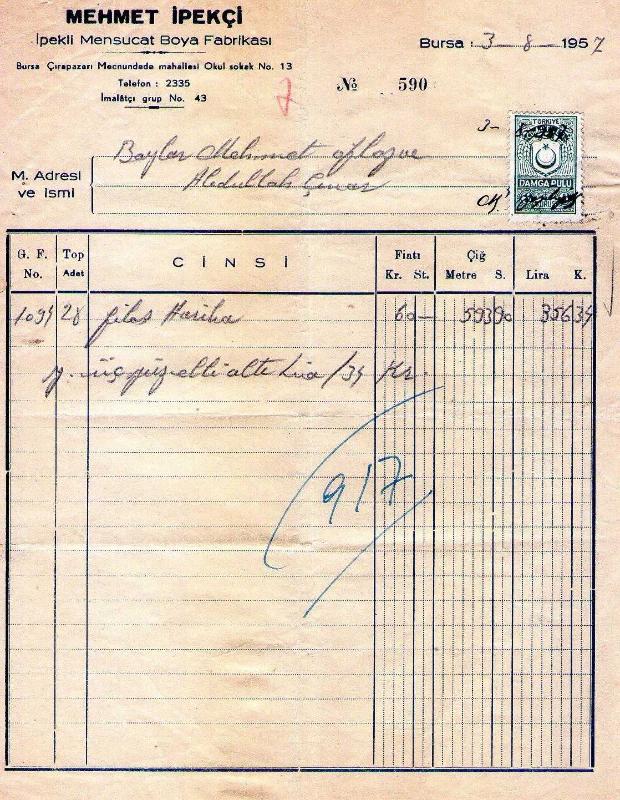 MEHMET İPEKÇİ
İpekli Mensucat Boya Fabrikası
Bursa Çırapazarı Mecnundede mahallesi Okul sokak No. 13
Telefon : 2335
İmalâtçı grup No. 43
Bursa : 3-8-1957
7
№ 590
3-
TÜRKİYE
DAMGA PULU
M. Adresi ve İsmi
Baylar Mehmet
Abdullah Çınar
G. F. No. Top Adet CİNSİ Fiatı Kr. St. Çiğ Metre S. Lira K.
1094 28 Harika 60- 59390 35634
Y. üç yüz elli altı Lira /34 Kr.
917